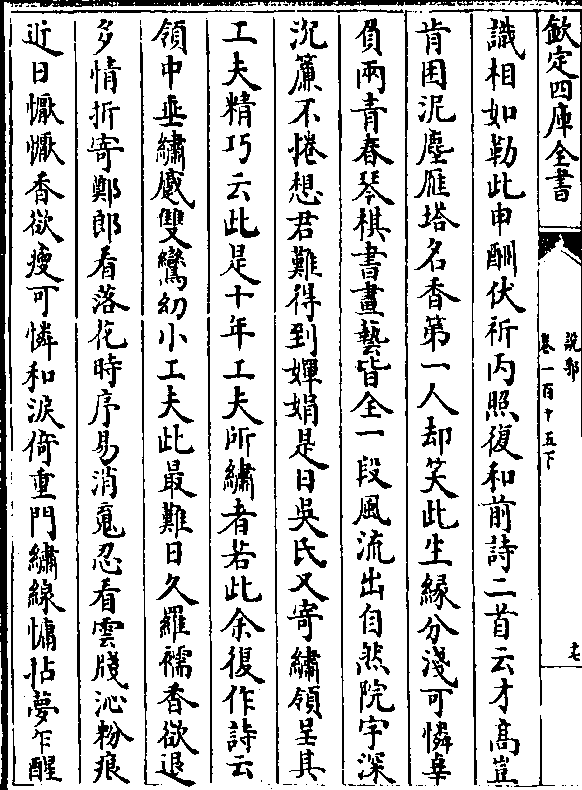 欽定四庫全書
說郛
卷一百十五下
識相如勒此申酬伏祈丙照復和前詩二首云才高豈
肯困泥塵雁塔名香第一人却笑此生緣分淺可憐辜
負兩青春琴棋書畫藝皆全一段風流出自然院宇深
沉簾不捲想君難得到嬋娟是日吳氏又寄繡領呈其
工夫精巧云此是十年工夫所繡者若此余復作詩云
領中垂繡感雙鸞幻小工夫此最難日久羅襦香欲退
多情折寄鄭郎看落花時序易消䰟忍看雲牋沁粉痕
近日懨懨香欲瘦可憐和淚倚重門繡線慵拈夢乍醒